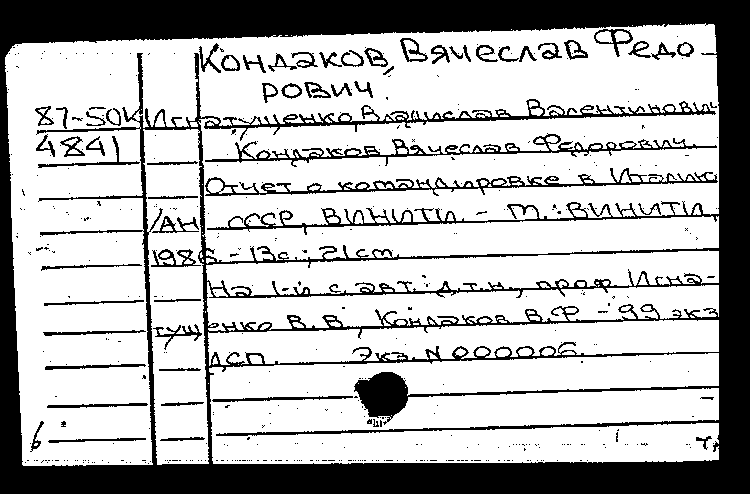 Кондаков, Вячеслав Федо-
рович.
87-50К Игнатущенко, Владислав Валентинович
4841 Кондаков, Вячеслав Федорович.
Отчет о командировке в Италию
/АН СССР, ВИНИТИ. - М.: ВИНИТИ,
1986. - 13с.; 21см.
На 1-й с. авт.: д.т.н., проф. Игна-
тущенко В.В., Кондаков В.Ф. - 99 экз
ДСП. Экз. N 000006.
6